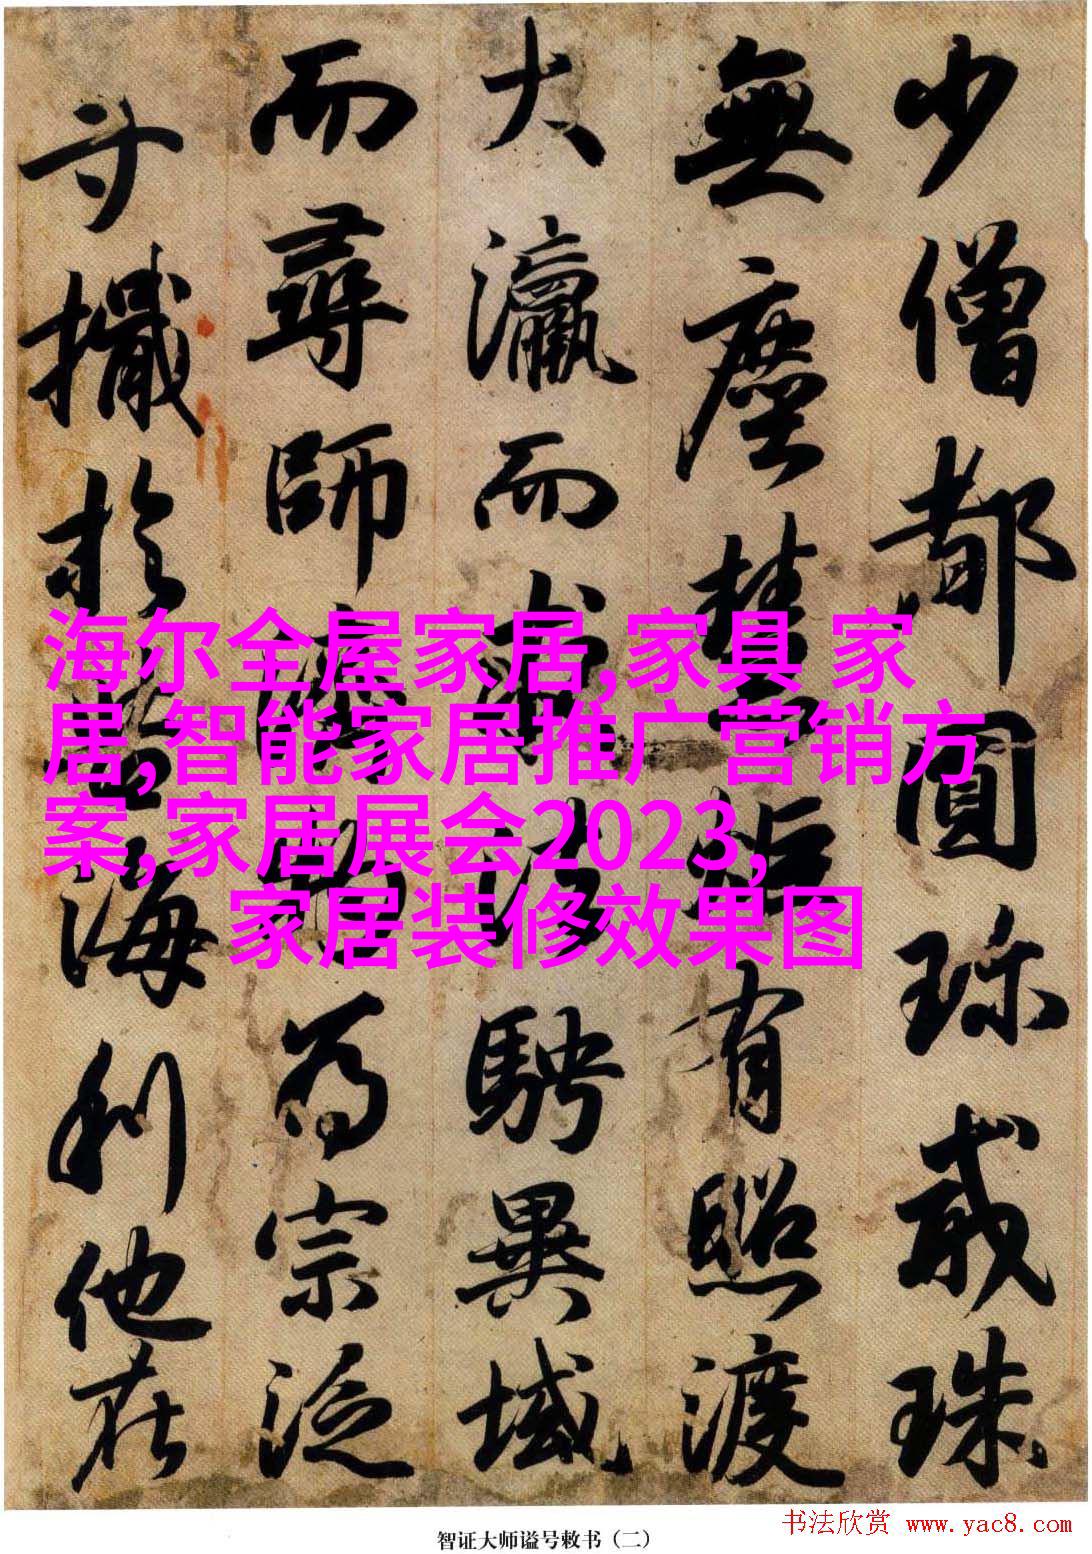 少僧都圓珎戒珠
無塵慧炬有照渡
大瀛而求法騁異域
而尋師濟物為宗泛
寸檝於巨海利他在
海尔全屋家居,家具 家
居,智能家居推广营销方
案,家居展会2023,
家居装修效果图
智证大师谥号敕书（二）
书法欣赏 www.yac8.com